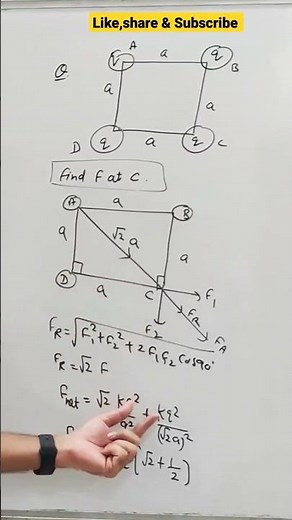 Like,share & Subscribe
Q
A a q B
q
a a
D q a q C
find F at C.
A a B
a √2 a a
D a C F1
F2 FR FA
FR = √F1² + F2² + 2 F1 F2 Cos90°
FR = √2 F
Fnet = √2 kq² + kq²
a² (√2a)²
[√2 + 1/2]